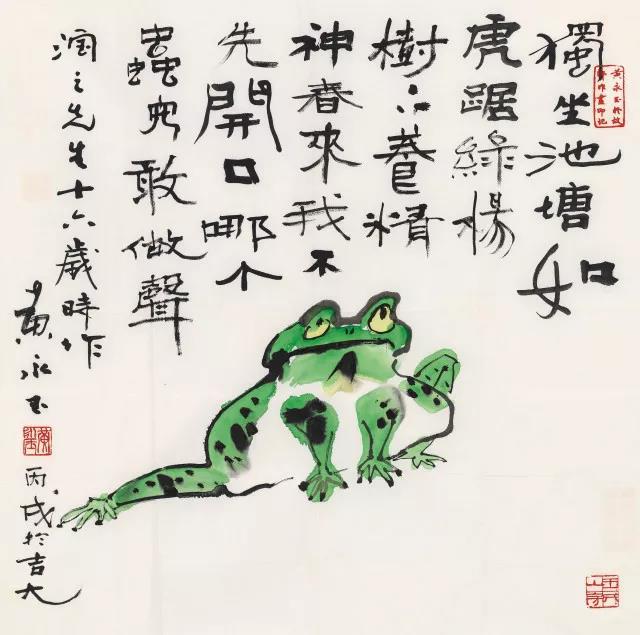 獨坐池塘如
虎踞綠楊
樹下養精
神春來我不
先開口哪个
蟲兒敢做聲
潤之先生十六歲時作
黃永玉
丙戌於吉大